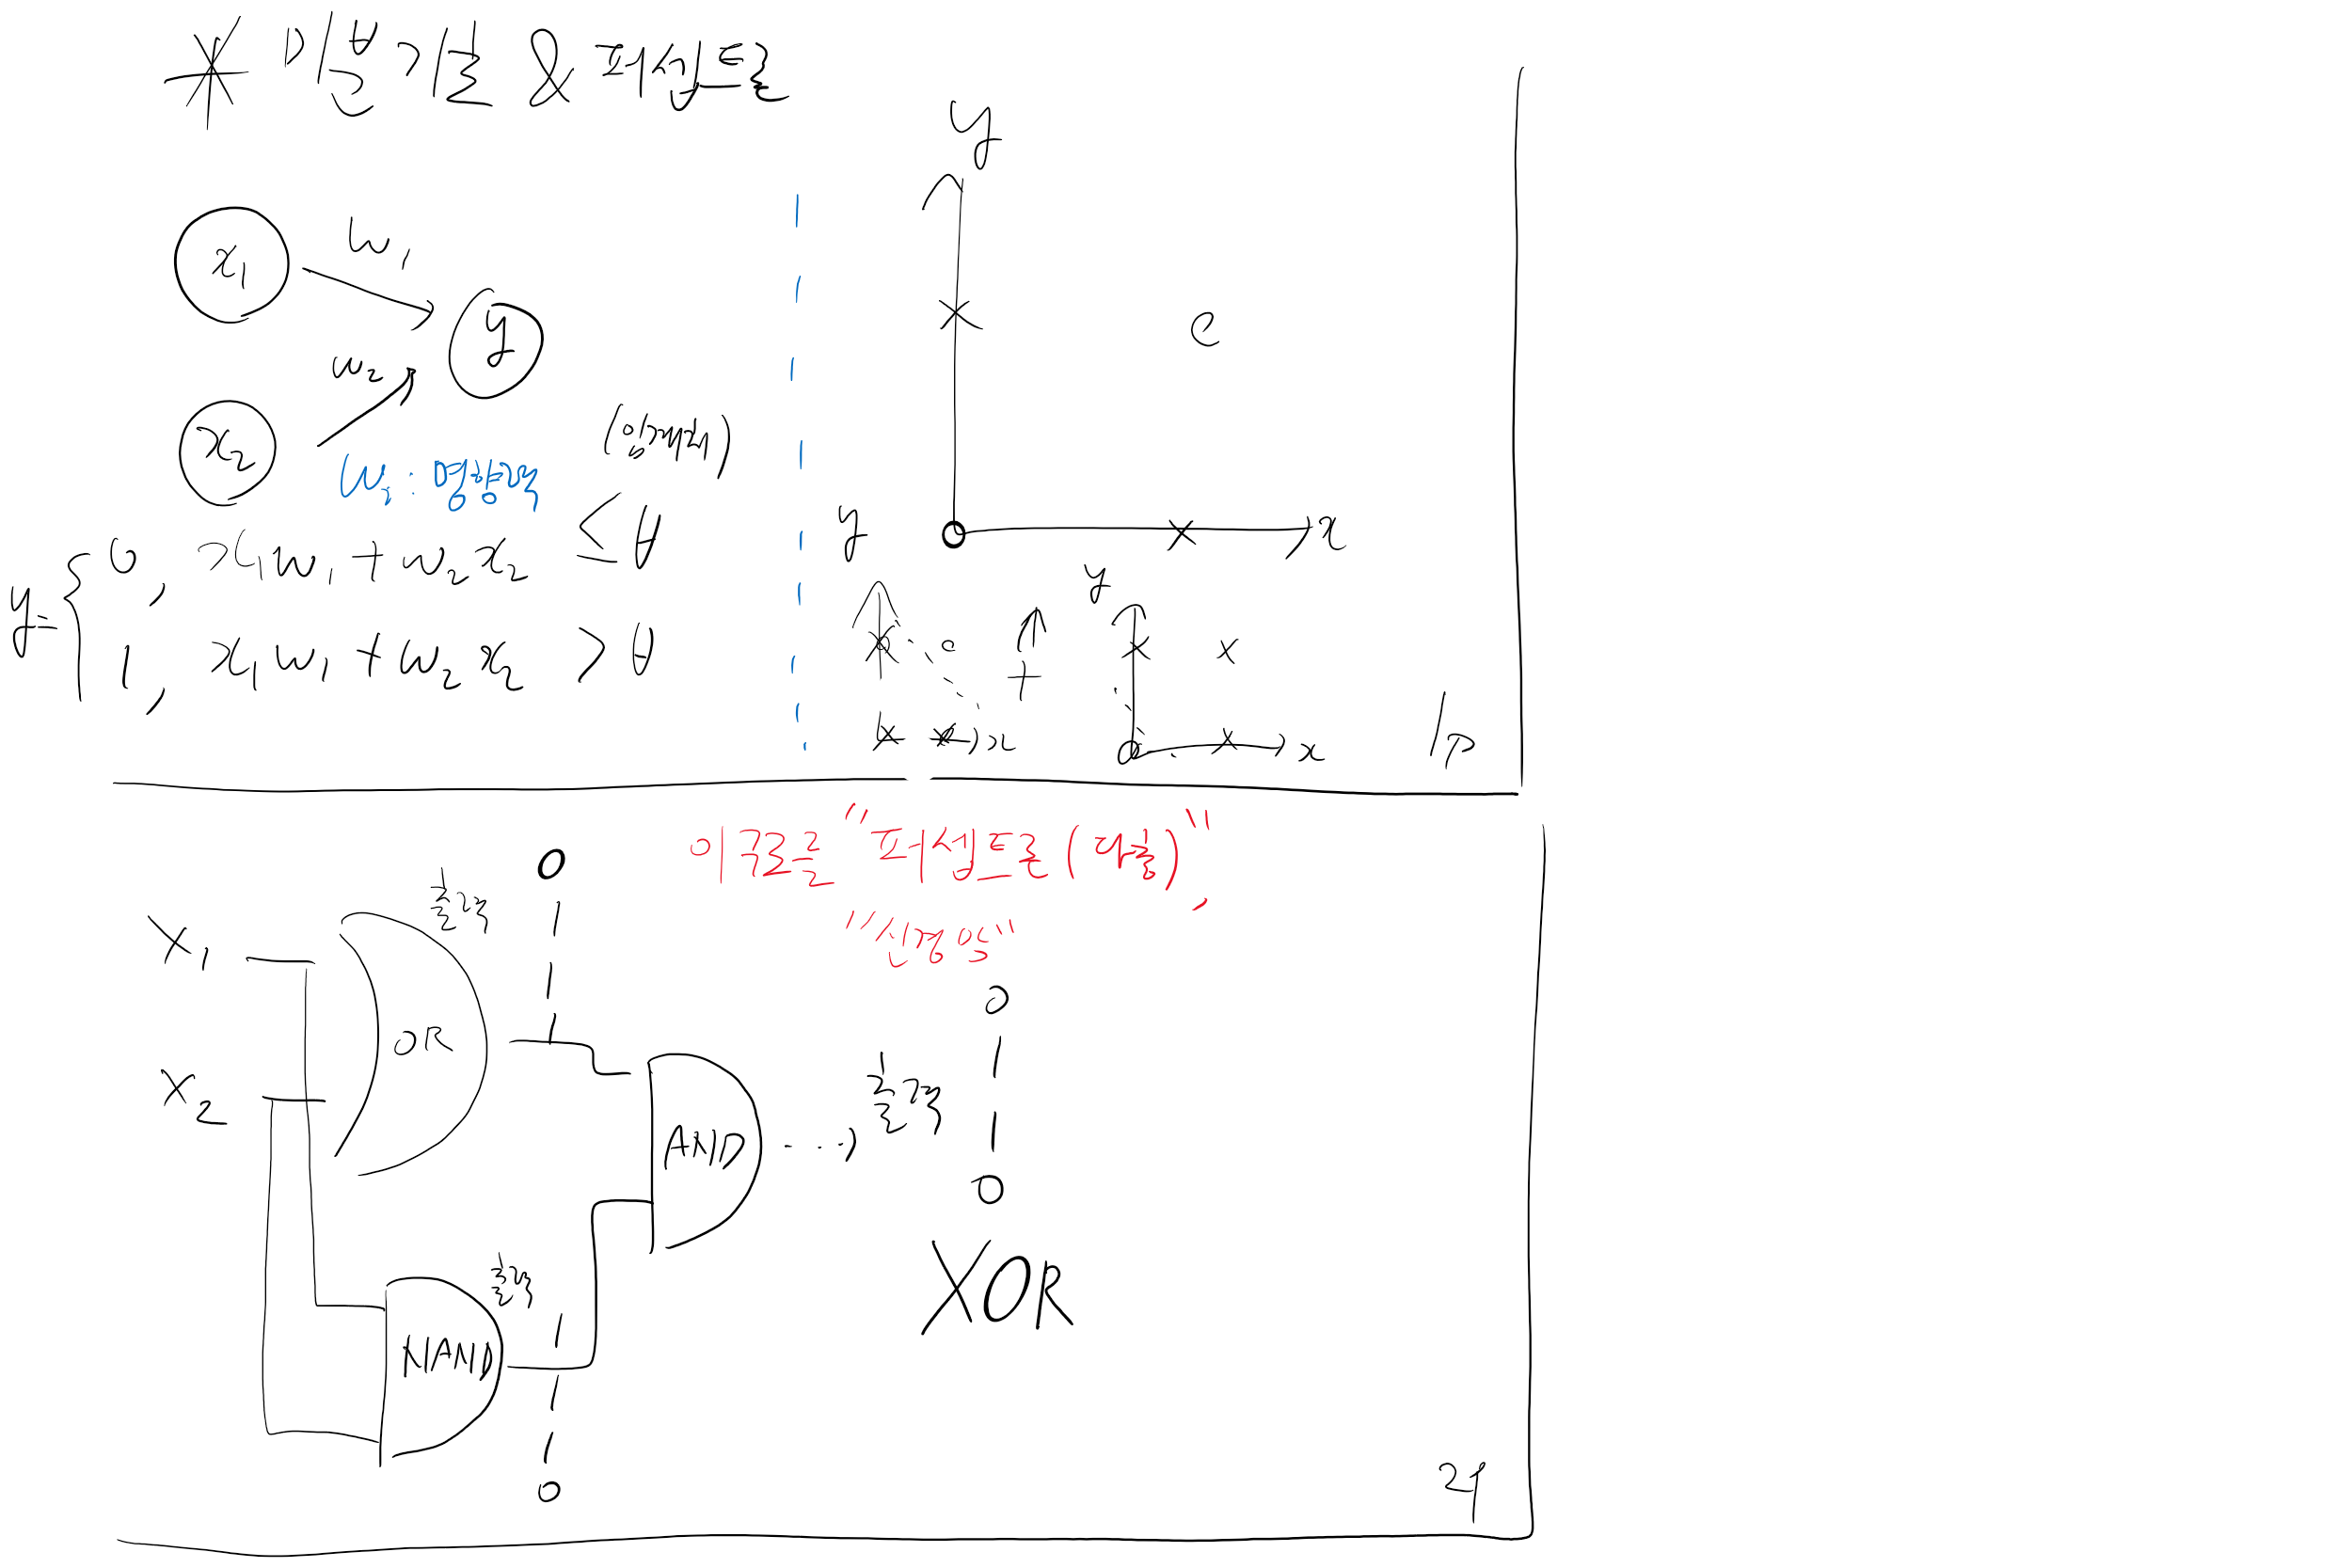 미분기초 & 퍼셉트론
x₁
w₁
y
w₂
x₂
wᵢ : 영향력
(임계치)
y= { 0, x₁w₁+w₂x₂ ≤θ
1, x₁w₁+w₂x₂ >θ
y
x
y
x
+
y
x
1p
"퍼셉트론(다층)",
"신경망"
0
X₁
출력
OR
X₂
AND
출력
0
0
NAND
출력
0
XOR
2p